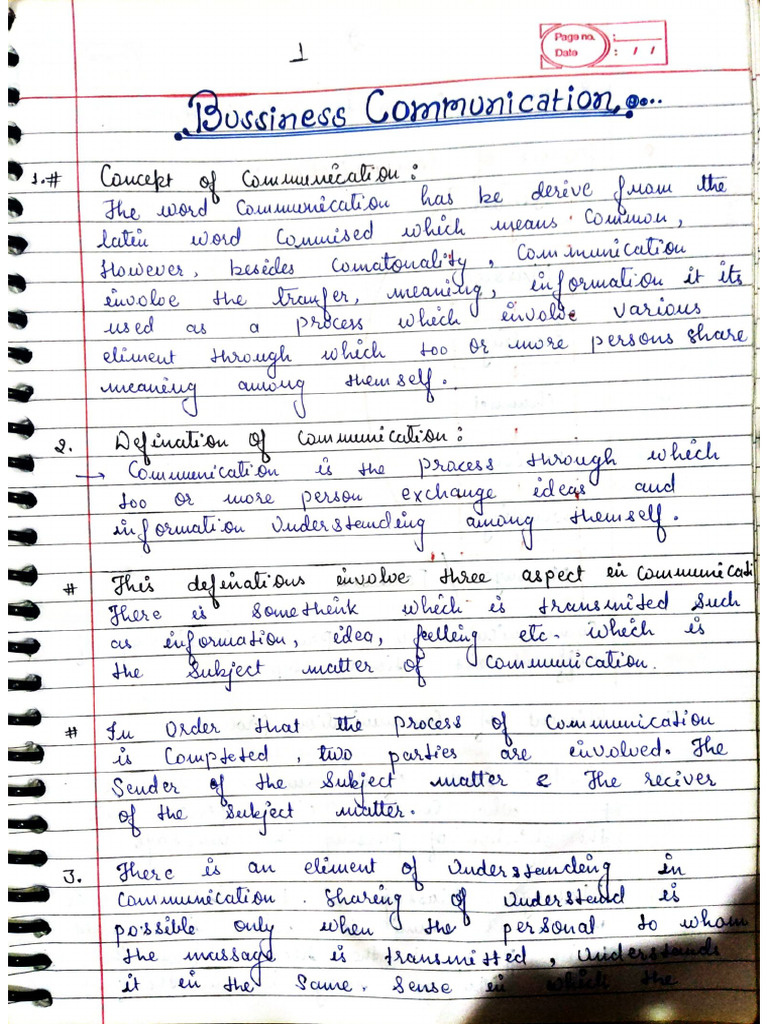 1
Page no. :
Date : / /
Bussiness Communication
1.# Concept of Communication :
The word Communication has be derive from the
latin word Commised which means Common,
However, besides Comatonality, Communication
involve the tranfer, meaning, information it its
used as a process which involve various
eliment through which too or more persons share
meaning among themself.
2. Defination of Communication :
→ Communication is the process through which
too or more person exchange ideas and
information Understanding among themself.
# This definations involve three aspect in communicati
There is somethink which is transmited such
as information, idea, feelling etc. which is
the Subject matter of communication.
# In Order that the process of communication
is Competed, two parties are involved. The
Sender of the Subject matter & The reciver
of the Subject matter.
3. There is an eliment of Understanding in
Communication. Sharing of Understand is
possible only when the personal to whom
the massage is transmitted, Understands
it in the Same. Sense in which the